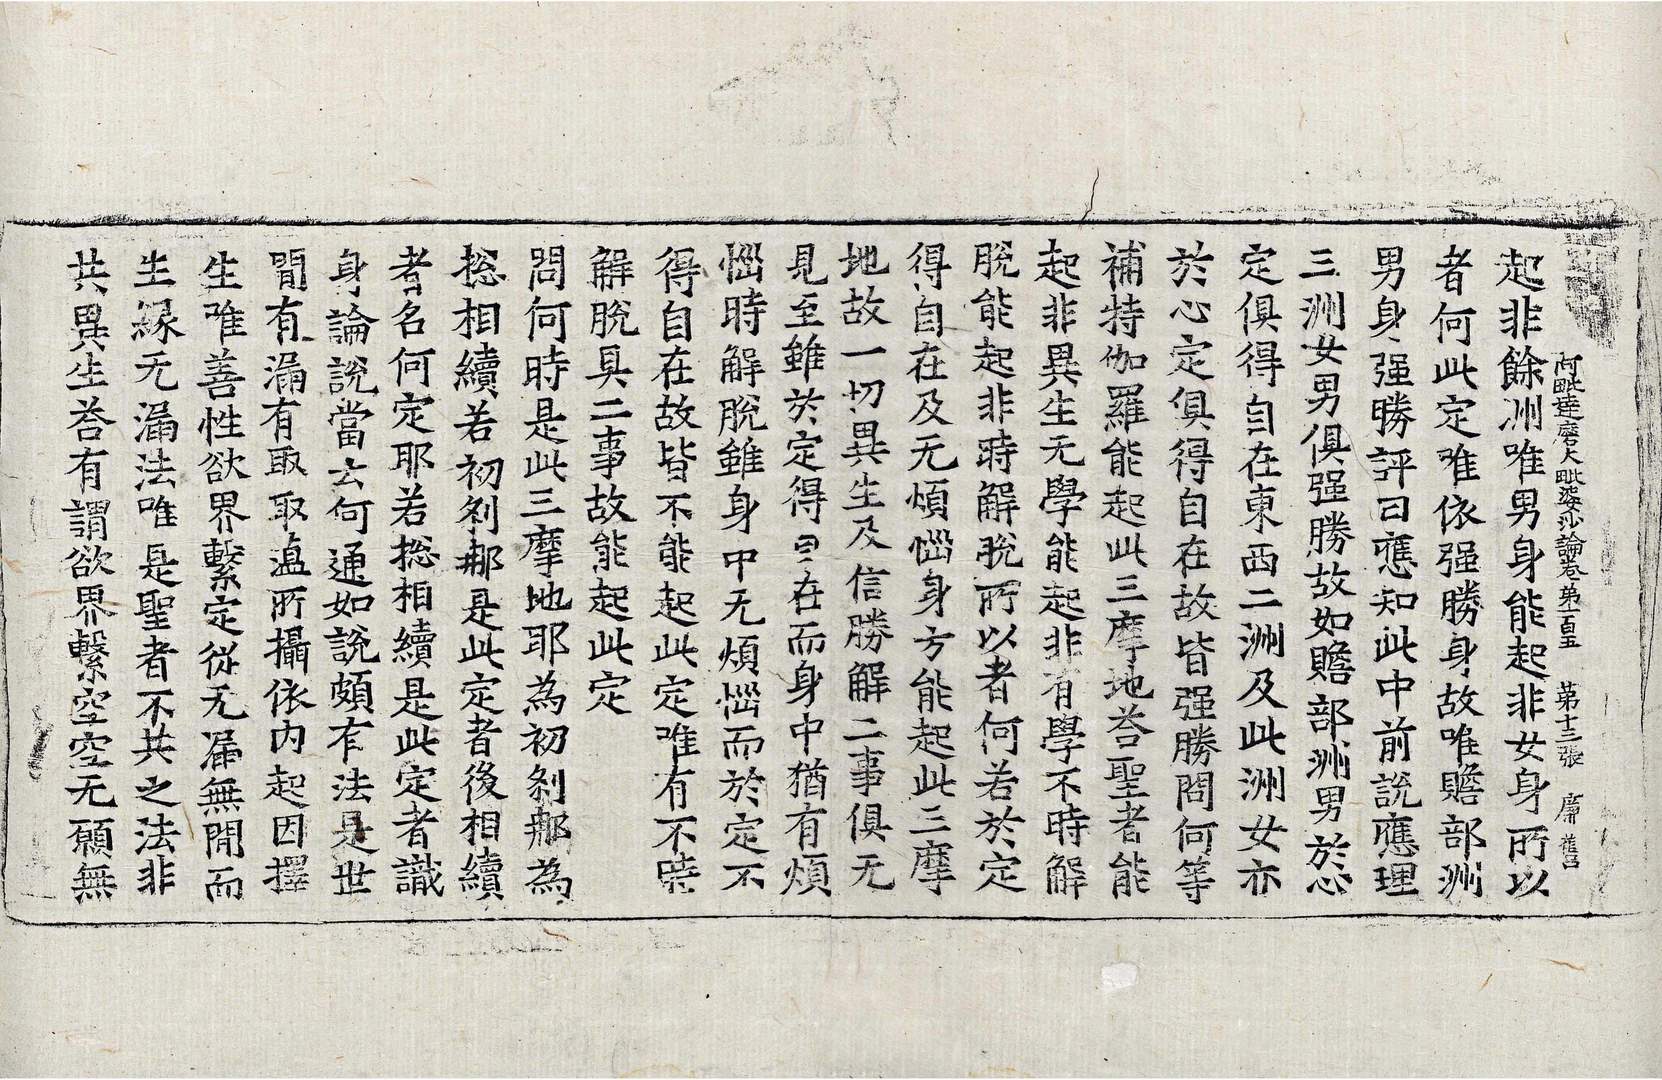 阿毗達磨大毗婆沙論卷第一百五 第十三張 廉
起非餘洲唯男身能起非女身所以
者何此定唯依强勝身故唯贍部洲
男身强勝評曰應知此中前說應理
三洲女男俱强勝故如贍部洲男於心
定俱得自在東西二洲及此洲女亦
於心定俱得自在故皆强勝問何等
補特伽羅能起此三摩地荅聖者能
起非異生无學能起非有學不時解
脫能起非時解脫所以者何若於定
得自在及无煩惱身方能起此三摩
地故一切異生及信勝解二事俱无
見至雖於定得自在而身中猶有煩
惱時解脫雖身中无煩惱而於定不
得自在故皆不能起此定唯有不時
解脫具二事故能起此定
問何時是此三摩地耶為初剎那為
捴相續若初剎那是此定者後相續
者名何定耶若捴相續是此定者識
身論說當云何通如說頗有法是世
間有漏有取取蘊所攝依內起因擇
生唯善性欲界繫定從无漏無間而
生緣无漏法唯是聖者不共之法非
共異生荅有謂欲界繫空空无願無